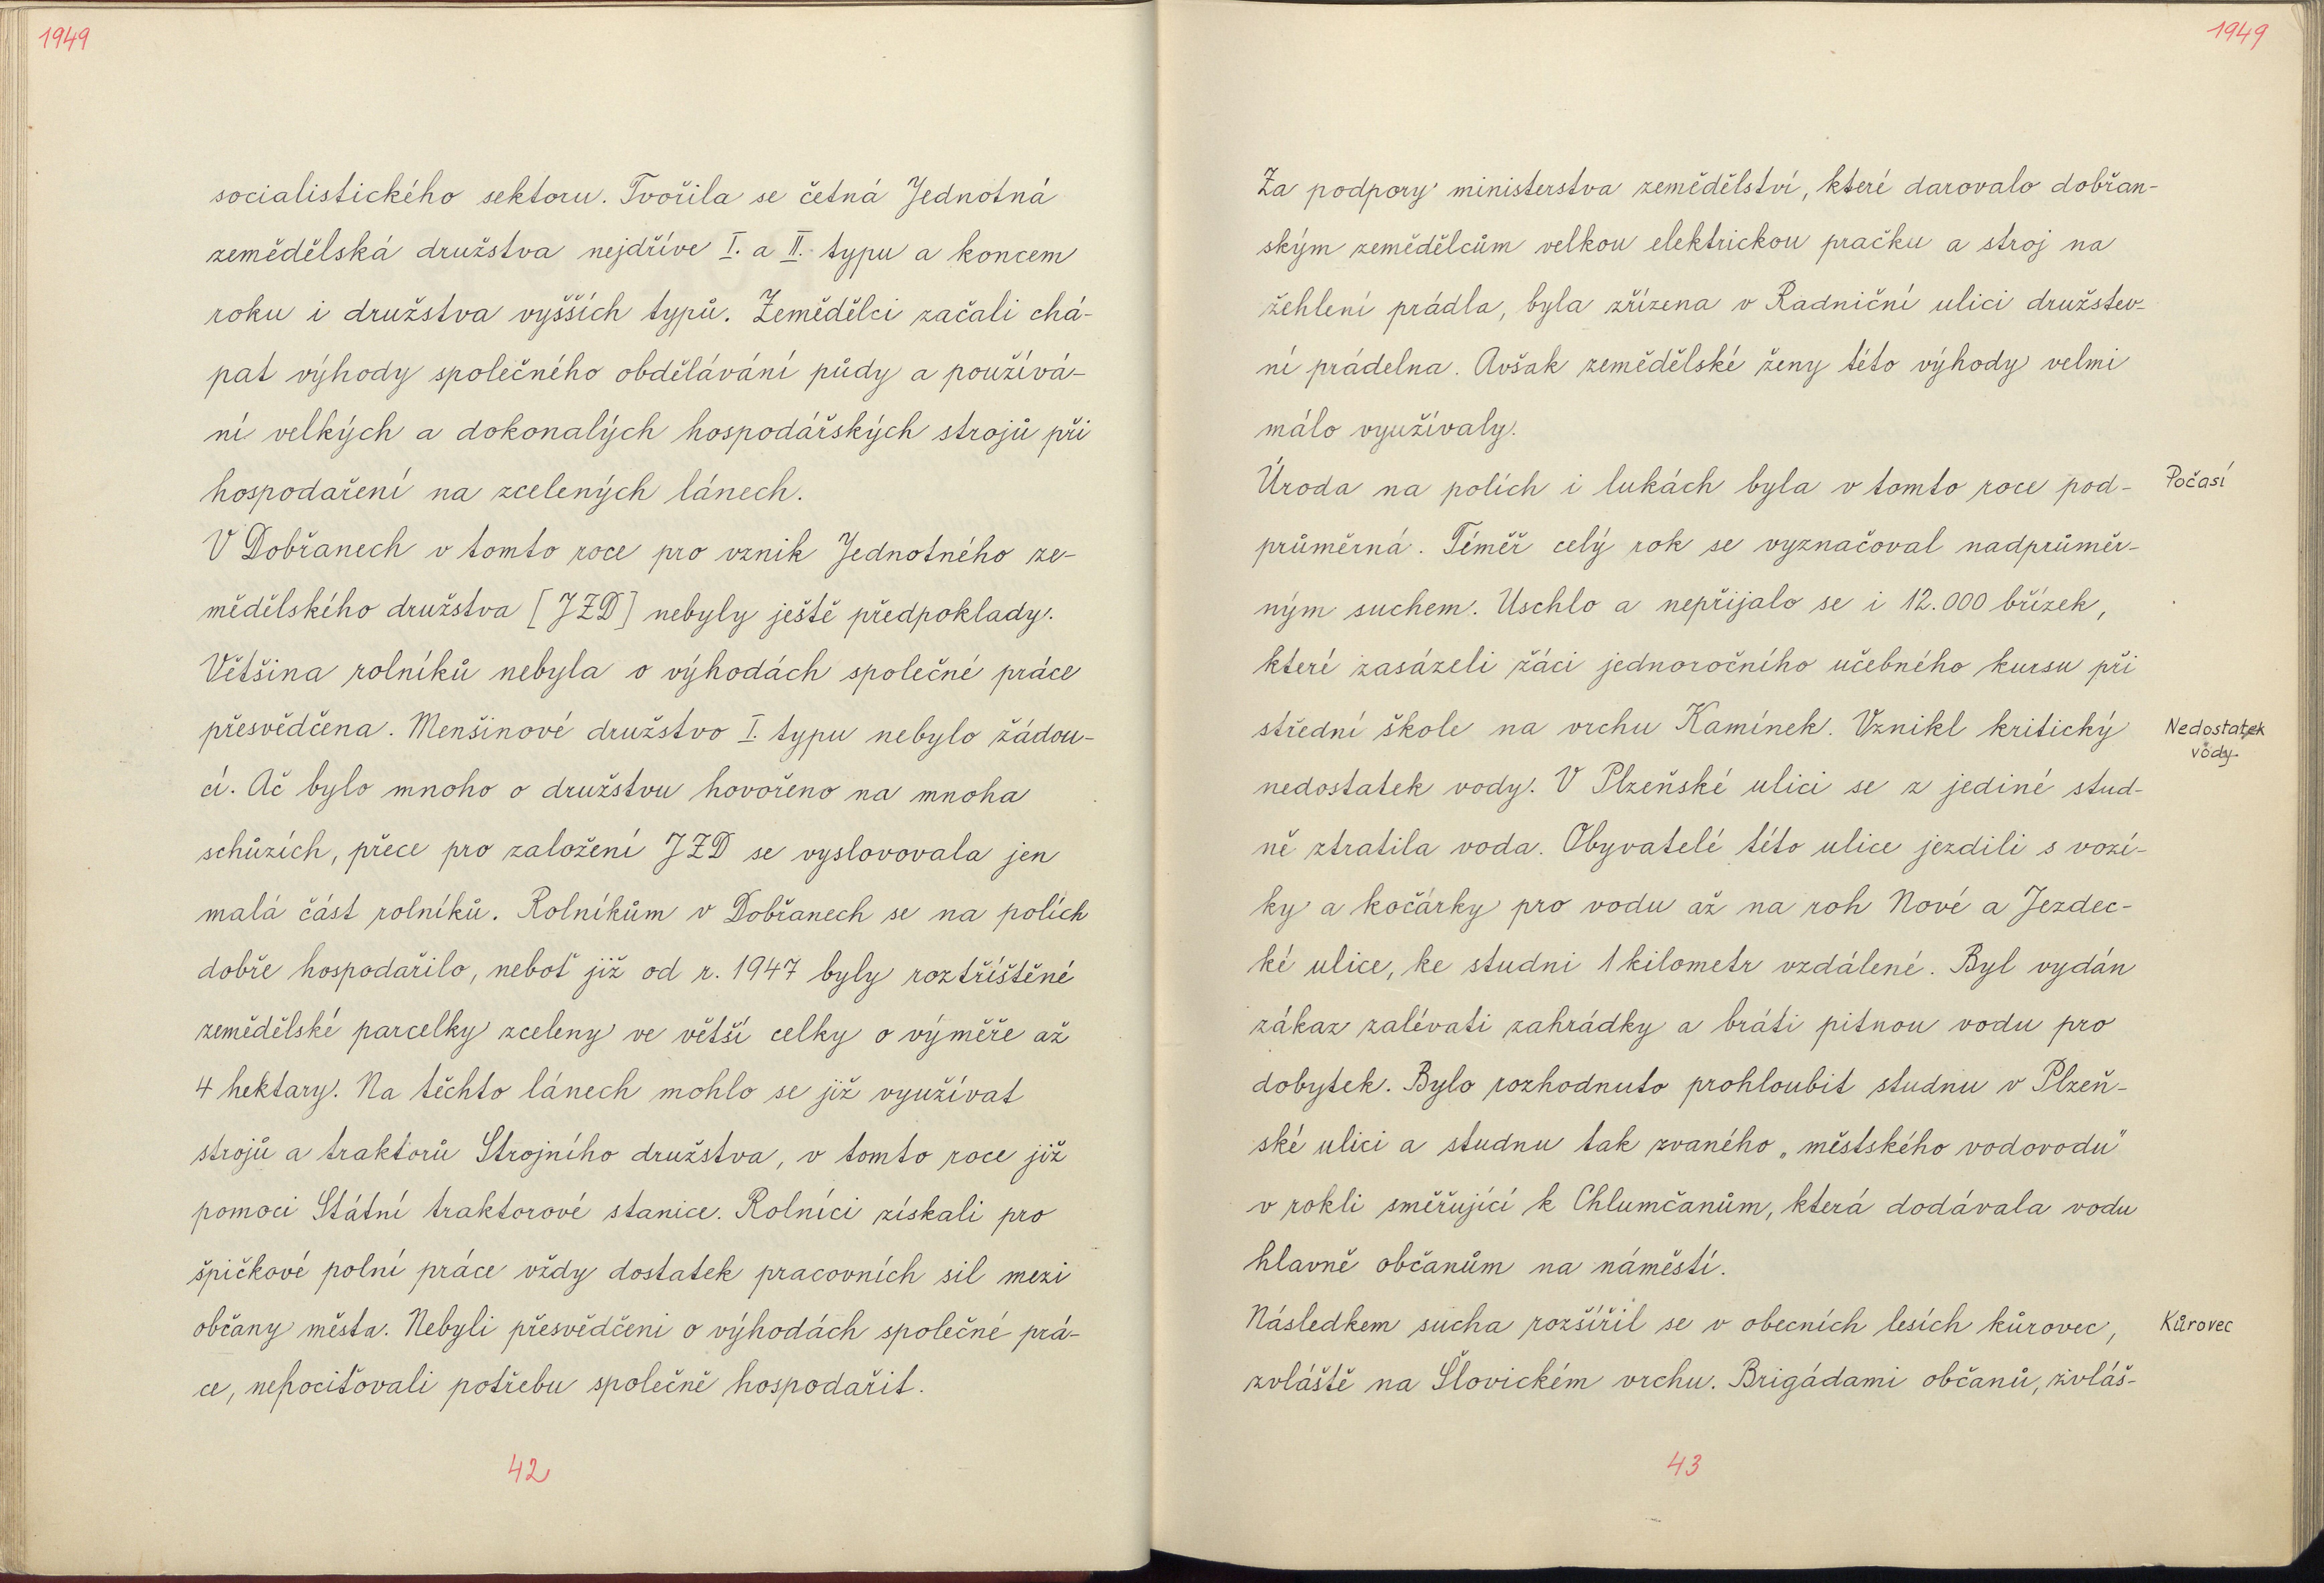 1949
socialistického sektoru. Tvořila se četná Jednotná
zemědělská družstva nejdříve I. a II. typu a koncem
roku i družstva vyšších typů. Zemědělci začali chá-
pat výhody společného obdělávání půdy a používá-
ní velkých a dokonalých hospodářských strojů při
hospodaření na zcelených lánech.
V Dobřanech v tomto roce pro vznik Jednotného ze-
mědělského družstva [JZD] nebyly ještě předpoklady.
Většina rolníků nebyla o výhodách společné práce
přesvědčena. Menšinové družstvo I. typu nebylo žádou-
cí. Ač bylo mnoho o družstvu hovořeno na mnoha
schůzích, přece pro založení JZD se vyslovovala jen
malá část rolníků. Rolníkům v Dobřanech se na polích
dobře hospodařilo, neboť již od r. 1947 byly roztříštěné
zemědělské parcelky zceleny ve větší celky o výměře až
4 hektary. Na těchto lánech mohlo se již využívat
strojů a traktorů Strojního družstva, v tomto roce již
pomoci Státní traktorové stanice. Rolníci získali pro
špičkové polní práce vždy dostatek pracovních sil mezi
občany města. Nebyli přesvědčeni o výhodách společné prá-
ce, nepociťovali potřebu společně hospodařit.
42
1949
Za podpory ministerstva zemědělství, které darovalo dobřan-
ským zemědělcům velkou elektrickou pračku a stroj na
žehlení prádla, byla zřízena v Radniční ulici družstev-
ní prádelna. Avšak zemědělské ženy této výhody velmi
málo využívaly.
Úroda na polích i lukách byla v tomto roce pod-
Počasí
průměrná. Téměř celý rok se vyznačoval nadprůměr-
ným suchem. Uschlo a nepřijalo se i 12.000 břízek,
které zasázeli žáci jednoročního učebného kursu při
střední škole na vrchu Kamínek. Vznikl kritický
Nedostatek
vody
nedostatek vody. V Plzeňské ulici se z jediné stud-
ně ztratila voda. Obyvatelé této ulice jezdili s vozí-
ky a kočárky pro vodu až na roh Nové a Jezdec-
ké ulice, ke studni 1 kilometr vzdálené. Byl vydán
zákaz zalévati zahrádky a bráti pitnou vodu pro
dobytek. Bylo rozhodnuto prohloubit studnu v Plzeň-
ské ulici a studnu tak zvaného „městského vodovodu"
v rokli směřující k Chlumčanům, která dodávala vodu
hlavně občanům na náměstí.
Následkem sucha rozšířil se v obecních lesích kůrovec,
Kůrovec
zvláště na Šlovickém vrchu. Brigádami občanů, zvláš-
43